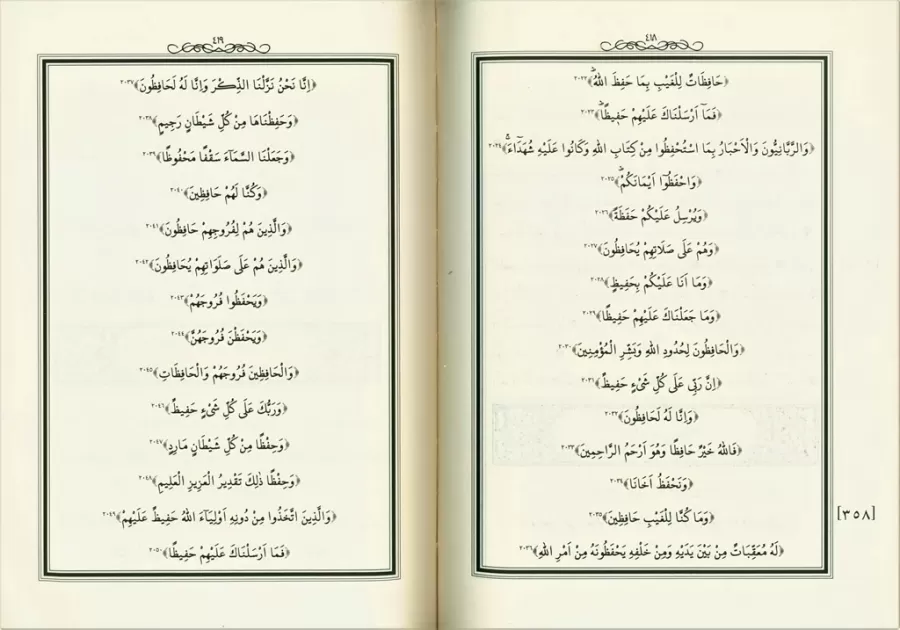 ٤١٨
﴿حَافِظَاتٌ لِلْغَيْبِ بِمَا حَفِظَ اللّٰهُۜ﴾٢٠٢٢
﴿فَمَٓا اَرْسَلْنَاكَ عَلَيْهِمْ حَفٖيظًاۜ﴾٢٠٢٣
﴿وَالرَّبَّانِيُّونَ وَالْاَحْبَارُ بِمَا اسْتُحْفِظُوا مِنْ كِتَابِ اللّٰهِ وَكَانُوا عَلَيْهِ شُهَدَٓاءَۚ﴾٢٠٢٤
﴿وَاحْفَظُٓوا اَيْمَانَكُمْۜ﴾٢٠٢٥
﴿وَيُرْسِلُ عَلَيْكُمْ حَفَظَةً﴾٢٠٢٦
﴿وَهُمْ عَلٰى صَلَاتِهِمْ يُحَافِظُونَ﴾٢٠٢٧
﴿وَمَا اَنَا عَلَيْكُمْ بِحَفٖيظٍ﴾٢٠٢٨
﴿وَمَا جَعَلْنَاكَ عَلَيْهِمْ حَفٖيظًا﴾٢٠٢٩
﴿وَالْحَافِظُونَ لِحُدُودِ اللّٰهِ وَبَشِّرِ الْمُؤْمِنٖينَ﴾٢٠٣٠
﴿اِنَّ رَبّٖى عَلٰى كُلِّ شَىْءٍ حَفٖيظٌ﴾٢٠٣١
﴿وَاِنَّا لَهُ لَحَافِظُونَ﴾٢٠٣٢
﴿فَاللّٰهُ خَيْرٌ حَافِظًا وَهُوَ اَرْحَمُ الرَّاحِمٖينَ﴾٢٠٣٣
﴿وَنَحْفَظُ اَخَانَا﴾٢٠٣٤
﴿وَمَا كُنَّا لِلْغَيْبِ حَافِظٖينَ﴾٢٠٣٥
﴿لَهُ مُعَقِّبَاتٌ مِنْ بَيْنِ يَدَيْهِ وَمِنْ خَلْفِهٖ يَحْفَظُونَهُ مِنْ اَمْرِ اللّٰهِ﴾٢٠٣٦
[٣٥٨]
٤١٩
﴿اِنَّا نَحْنُ نَزَّلْنَا الذِّكْرَ وَاِنَّا لَهُ لَحَافِظُونَ﴾٢٠٣٧
﴿وَحَفِظْنَاهَا مِنْ كُلِّ شَيْطَانٍ رَجٖيمٍ﴾٢٠٣٨
﴿وَجَعَلْنَا السَّمَٓاءَ سَقْفًا مَحْفُوظًا﴾٢٠٣٩
﴿وَكُنَّا لَهُمْ حَافِظٖينَ﴾٢٠٤٠
﴿وَالَّذٖينَ هُمْ لِفُرُوجِهِمْ حَافِظُونَ﴾٢٠٤١
﴿وَالَّذٖينَ هُمْ عَلٰى صَلَوَاتِهِمْ يُحَافِظُونَ﴾٢٠٤٢
﴿وَيَحْفَظُوا فُرُوجَهُمْ﴾٢٠٤٣
﴿وَيَحْفَظْنَ فُرُوجَهُنَّ﴾٢٠٤٤
﴿وَالْحَافِظٖينَ فُرُوجَهُمْ وَالْحَافِظَاتِ﴾٢٠٤٥
﴿وَرَبُّكَ عَلٰى كُلِّ شَىْءٍ حَفٖيظٌ﴾٢٠٤٦
﴿وَحِفْظًا مِنْ كُلِّ شَيْطَانٍ مَارِدٍ﴾٢٠٤٧
﴿وَحِفْظًا ذٰلِكَ تَقْدٖيرُ الْعَزٖيزِ الْعَلٖيمِ﴾٢٠٤٨
﴿وَالَّذٖينَ اتَّخَذُوا مِنْ دُونِهٖ اَوْلِيَٓاءَ اللّٰهُ حَفٖيظٌ عَلَيْهِمْ﴾٢٠٤٩
﴿فَمَٓا اَرْسَلْنَاكَ عَلَيْهِمْ حَفٖيظًا﴾٢٠٥٠